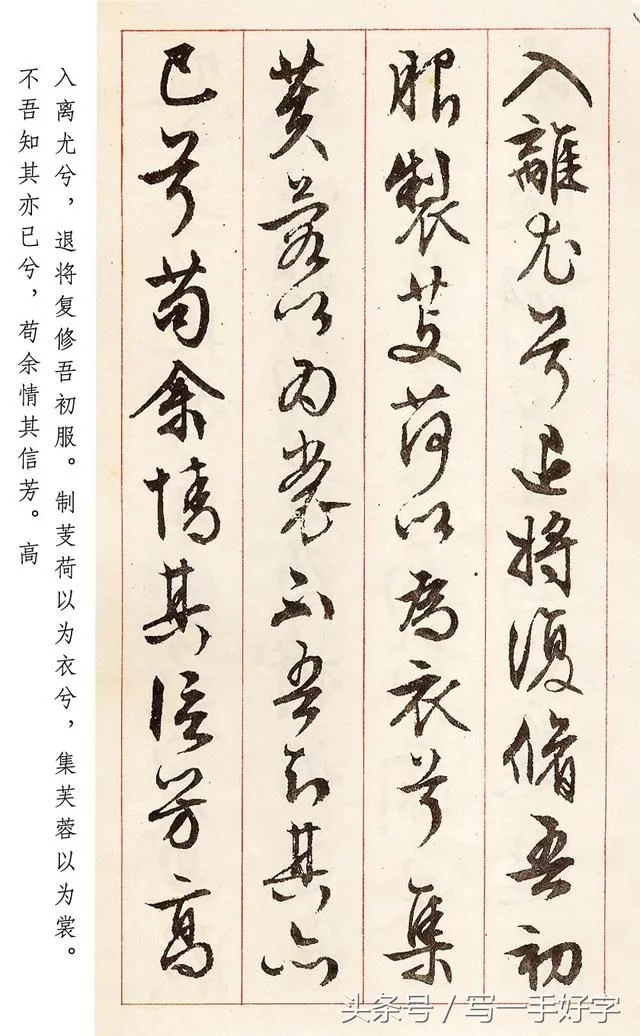 入離尤兮退將復脩吾初
服製芰荷以為衣兮集
芙蓉以为裳不吾知其亦
已兮苟余情其信芳高
入离尤兮，退将复修吾初服。制芰荷以为衣兮，集芙蓉以为裳。
不吾知其亦已兮，苟余情其信芳。高
头条号 / 写一手好字